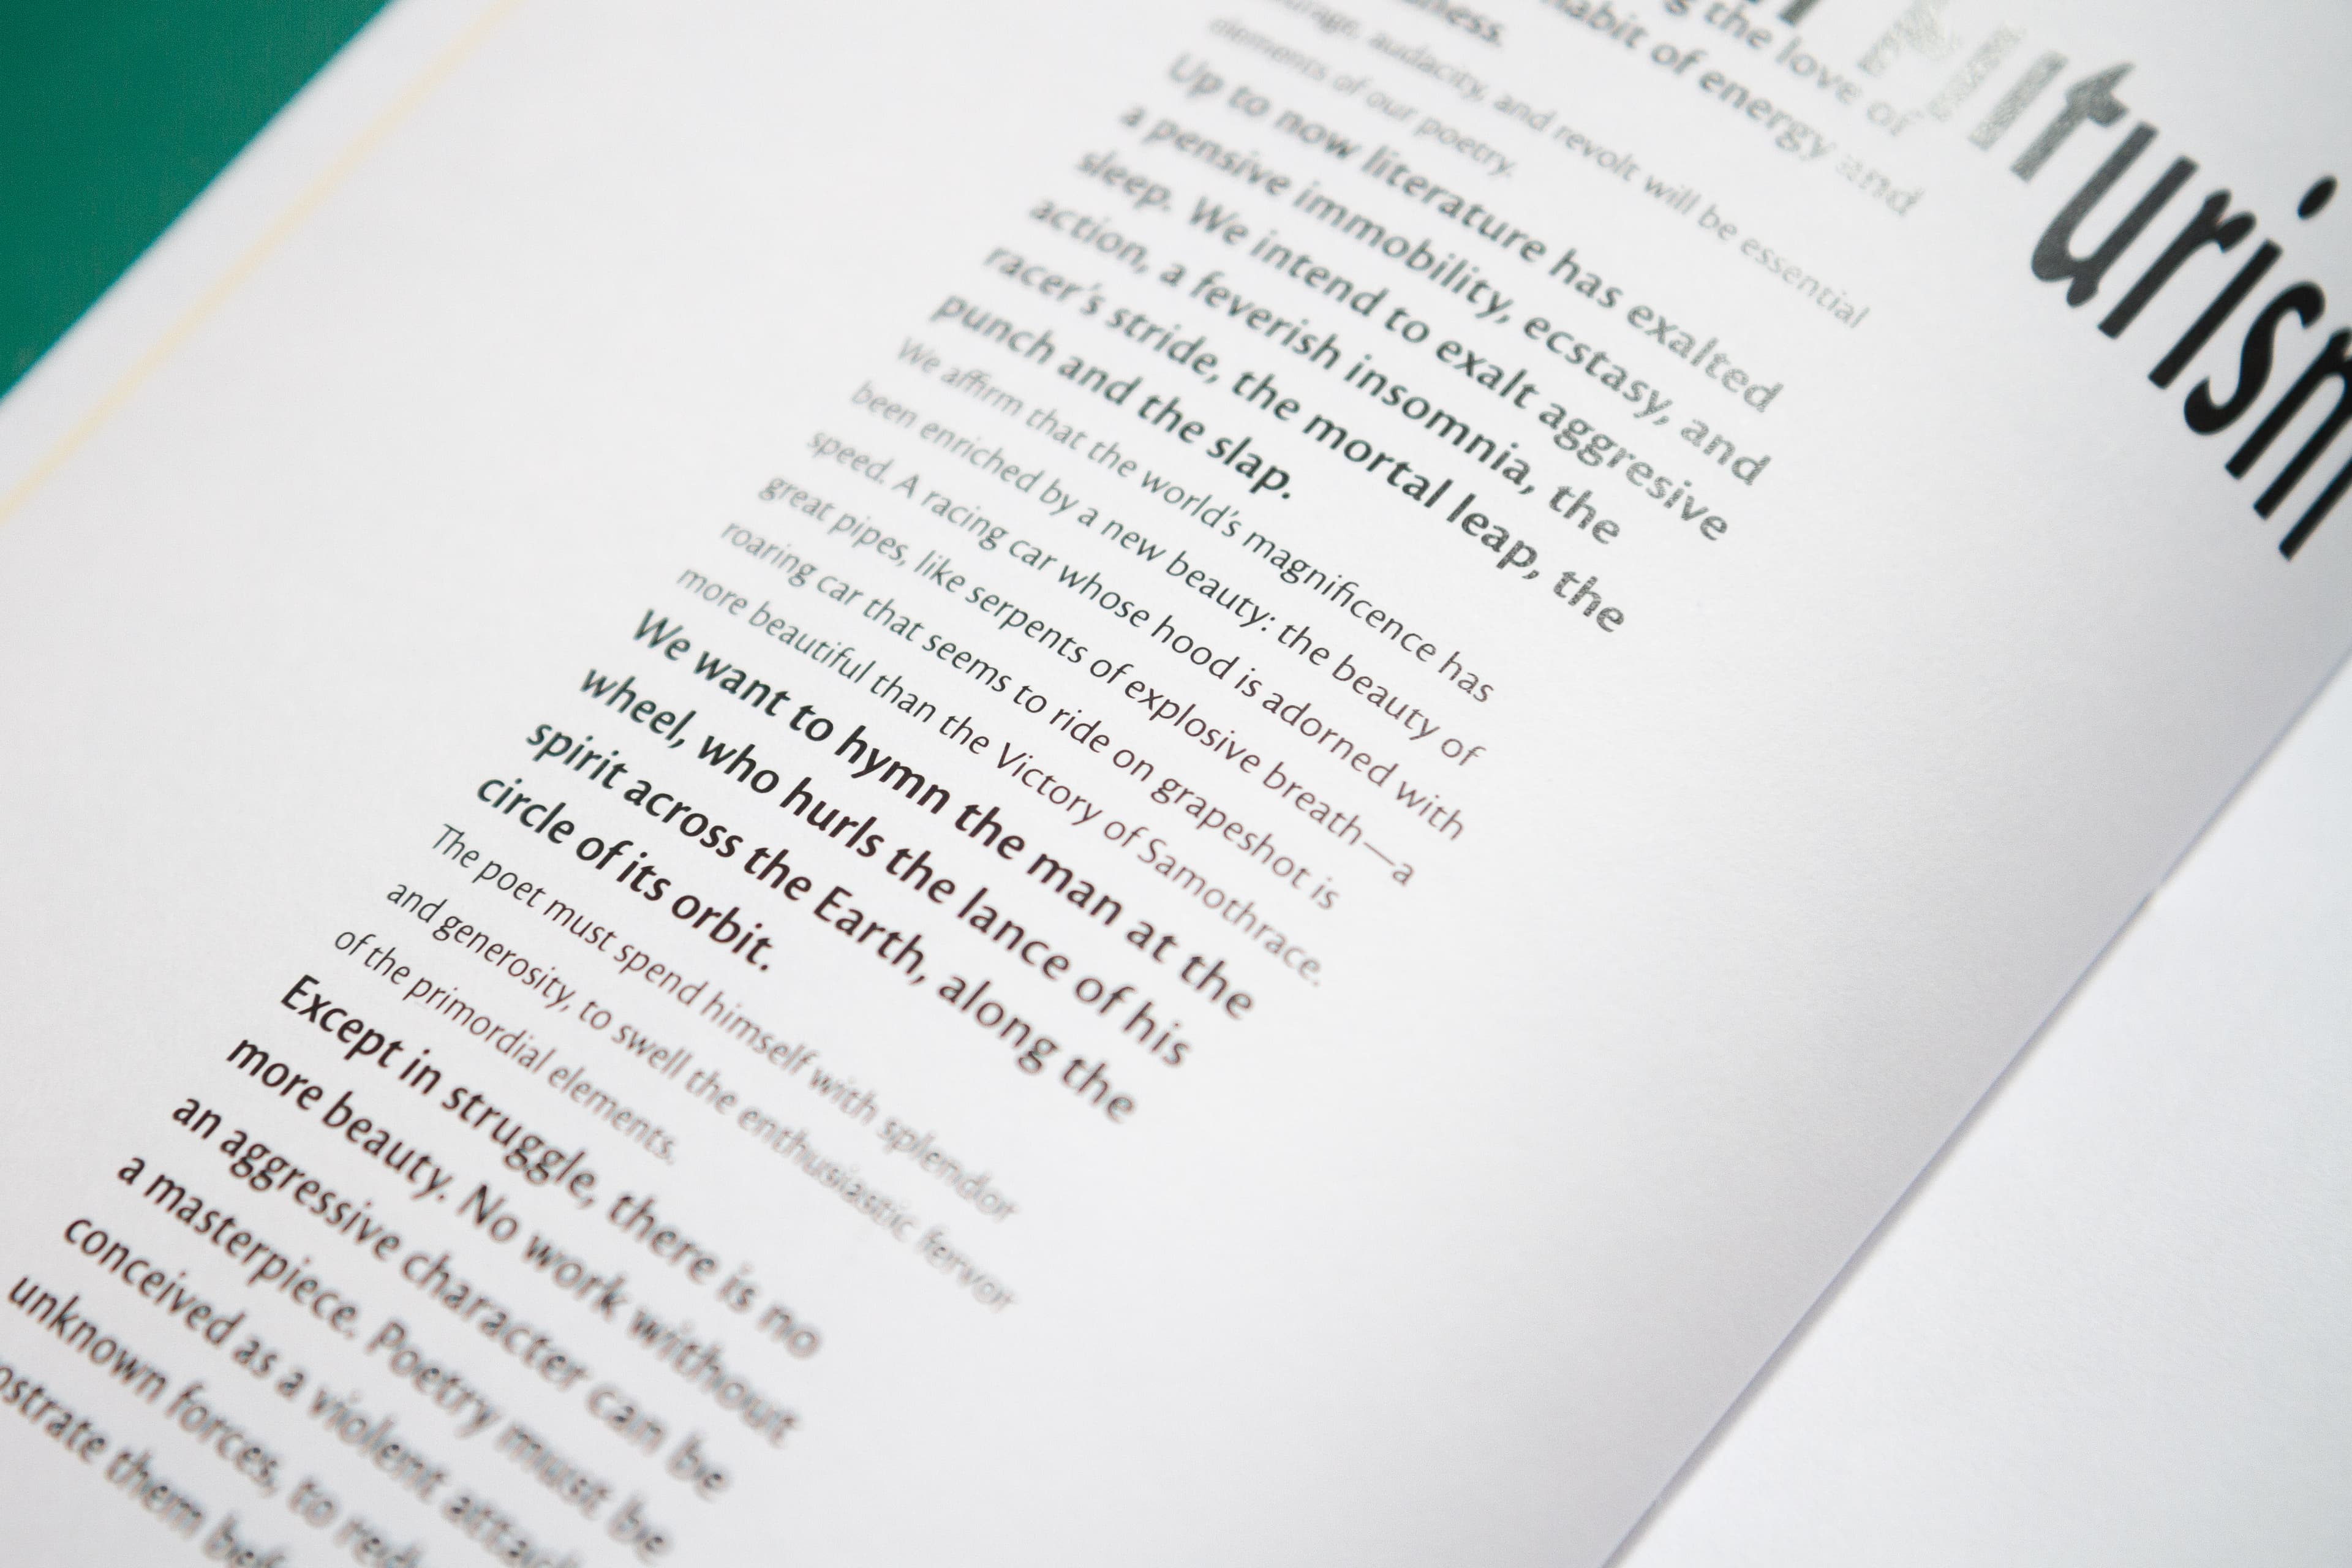 turism
the love of
habit of energy and
audacity, and revolt will be essential
elements of our poetry.
Up to now literature has exalted
a pensive immobility, ecstasy, and
sleep. We intend to exalt aggresive
action, a feverish insomnia, the
racer's stride, the mortal leap, the
punch and the slap.
We affirm that the world's magnificence has
been enriched by a new beauty: the beauty of
speed. A racing car whose hood is adorned with
great pipes, like serpents of explosive breath—a
roaring car that seems to ride on grapeshot is
more beautiful than the Victory of Samothrace.
We want to hymn the man at the
wheel, who hurls the lance of his
spirit across the Earth, along the
circle of its orbit.
The poet must spend himself with splendor
and generosity, to swell the enthusiastic fervor
of the primordial elements.
Except in struggle, there is no
more beauty. No work without
an aggressive character can be
a masterpiece. Poetry must be
conceived as a violent attack
unknown forces, to
ostrate them